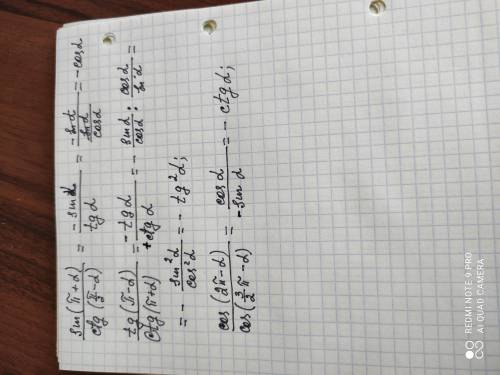 sin(π+α)/ctg(π/2-α) = -sinα/tgα = -sinα/(sinα/cosα) = -cosα
tg(π-α)/ctg(π+α) = -tgα/+ctgα = -sinα/cosα : cosα/sinα =
= -sin²α/cos²α = -tg²α;
cos(2π-α)/cos(3/2π-α) = cosα/-sinα = -ctgα;
REDMI NOTE 9 PRO
AI QUAD CAMERA